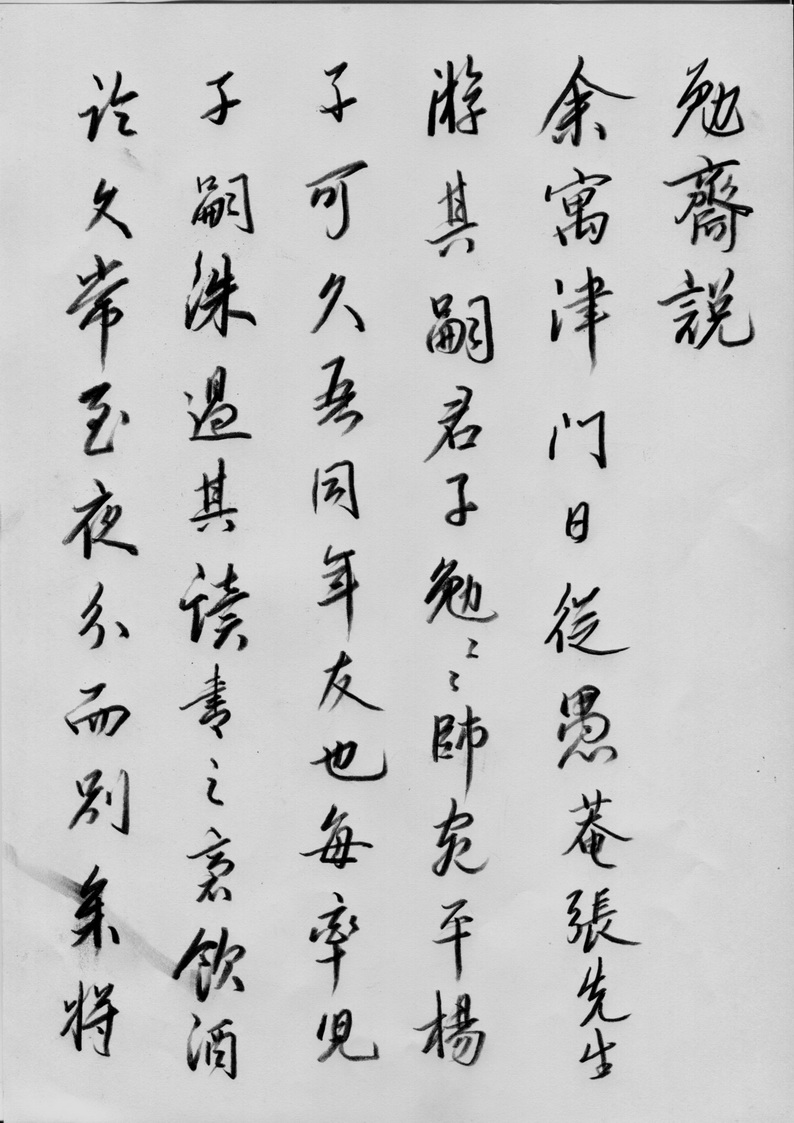 勉齋説
余寓津门日從愚菴張先生
游其嗣君子勉〻〻師宛平楊
子可久吾同年友也每率児
子嗣洙過其读書之飲酒
论久常至夜分而别余将